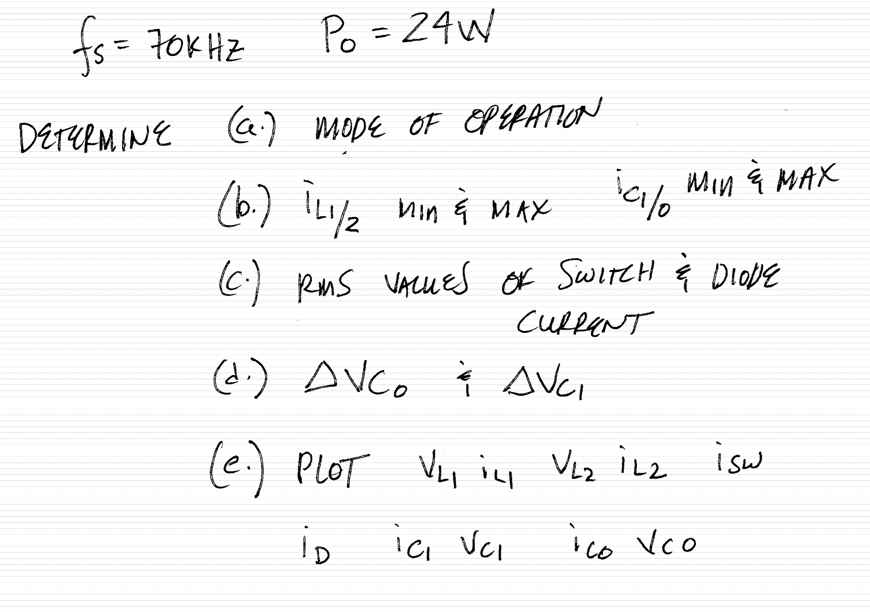 fs = 70KHZ Po = 24W
DETERMINE (a.) MODE OF OPERATION
(b.) iL1/2 MIN & MAX iC1/0 MIN & MAX
(c.) RMS VALUES OF SWITCH & DIODE
CURRENT
(d.) ΔVCo & ΔVC1
(e.) PLOT VL1 iL1 VL2 iL2 iSW
iD iC1 VC1 iCO VCO